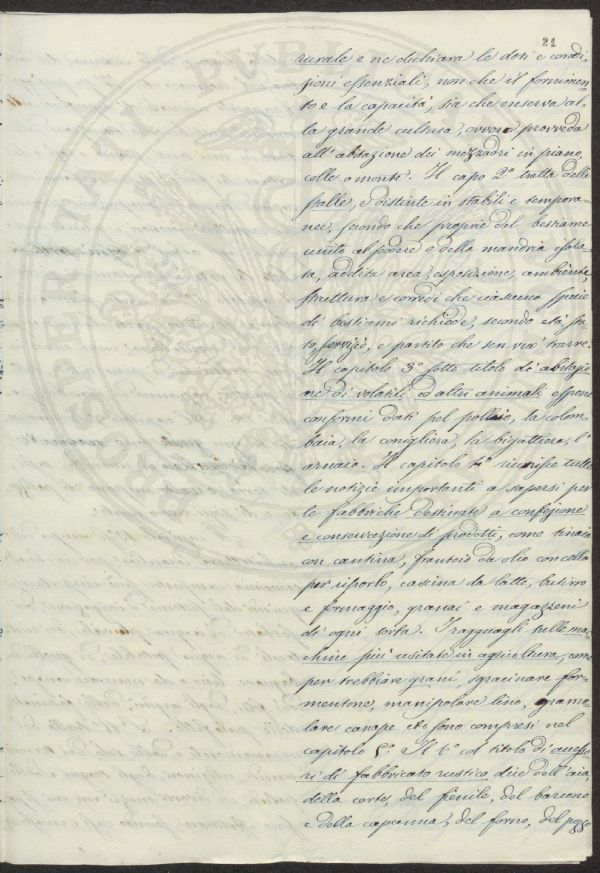 21
rurale e ne dichiara le doti e condi-
zioni essenziali, non che il fornimen-
to e la capacità, sia che inserva al-
la grande cultura, ovvero provveda
all'abitazione dei mezzadri in piano,
colle o monte. Il capo 2° tratta delle
stalle, e distinte in stabili e tempora-
nee, secondo che proprie del bestiame
unito al podere o della mandria isola-
ta, addita area, esposizione, ambiente,
struttura e corredi che ciascuna specie
di bestiami richiede, secondo età, sta-
to, servizio, e partito che sen vuò trarre.
Il capitolo 3° sotto titolo di abitazio-
ne di volatili ed altri animali espone
conformi dati pel pollaio, la colom-
baia, la conigliera, la bigattiera, l'
arnaio. Il capitolo 4° riunisce tutte
le notizie importanti a sapersi per
le fabbriche destinate a confezione
e conservazione di prodotti, come tinaia
con cantina, frantoio da olio con cella
per riporlo, cascina da latte, butirro
e formaggio, granai e magazzeni
di ogni sorta. I ragguagli sulle ma-
chine più usitate in agricoltura, come
per trebbiare grani, sgracinare for-
mentone, manipolare lino, gramo-
lare canape etc sono compresi nel
capitolo 5°. Il 6° col titolo di accesso-
ri di fabbricato rustico dice dell'aia,
della corte, del fienile, del barcone
e della capanna, del forno, del pozzo
PROSPERITATI PUBL